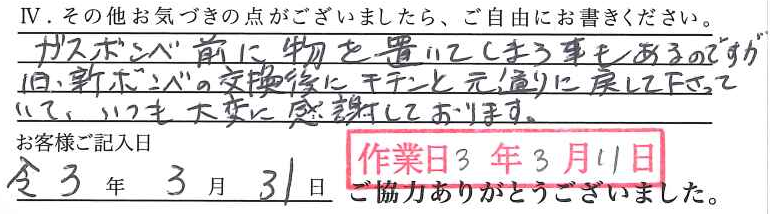 Ⅳ. その他お気づきの点がございましたら、ご自由にお書きください。
ガスボンベ前に物を置いてしまう事もあるのですが
旧・新ボンベの交換後にキチンと元通りに戻して下さって
いて、いつも大変に感謝しております。
お客様ご記入日
作業日3年3月11日
令3年3月31日
ご協力ありがとうございました。